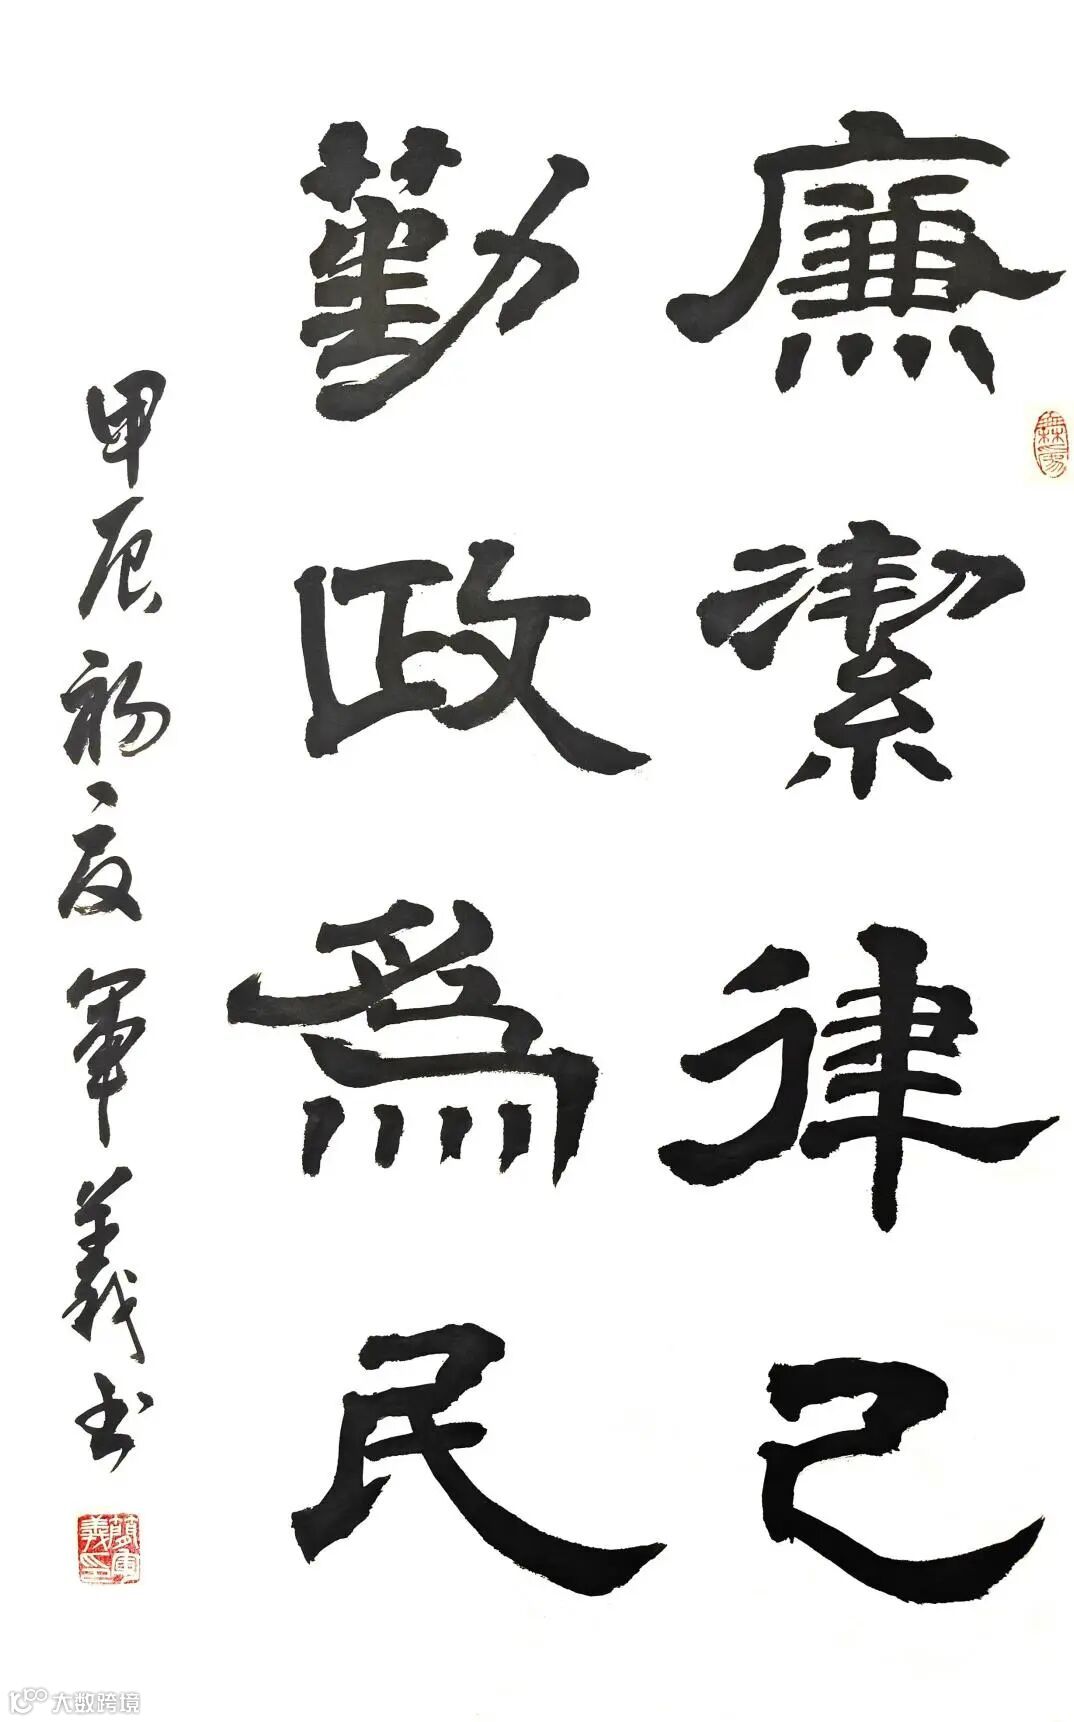 廉潔律己
勤政爲民
甲辰初夏軍義书
大数跨境